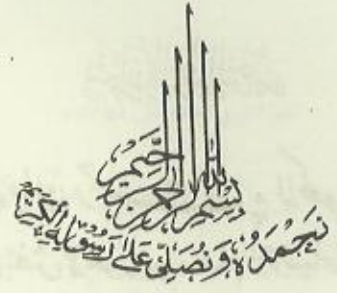 بِسْمِ اللهِ الرَّحْمٰنِ الرَّحِيْمِ
نَحْمَدُهٗ وَنُصَلِّیْ عَلٰی رَسُوْلِهِ الْكَرِيْمِ